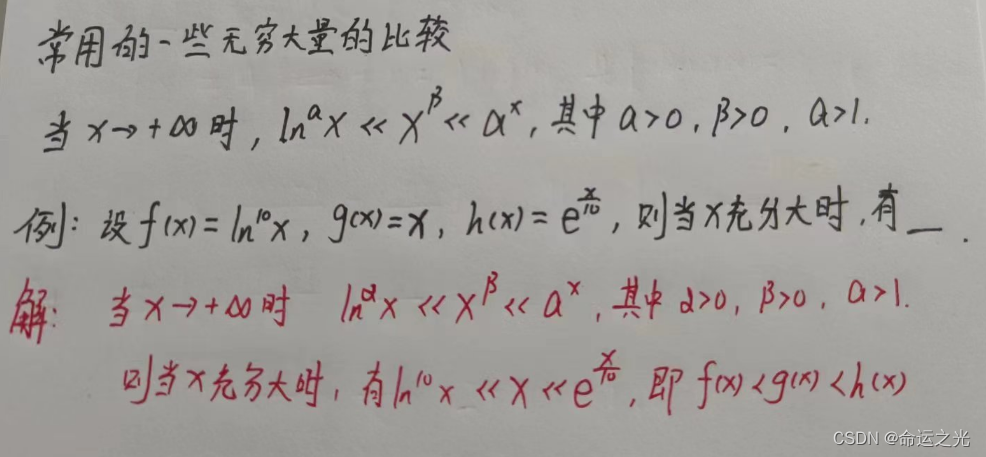 常用的一些无穷大量的比较
当 x→+∞ 时, lnᵅx << x^β << a^x, 其中 α>0, β>0, a>1.
例: 设 f(x)=ln¹⁰x, g(x)=x, h(x)=e^(x/10), 则当x充分大时,有__.
解: 当 x→+∞ 时 lnᵅx << x^β << a^x, 其中 α>0, β>0, a>1.
则当x充分大时, 有ln¹⁰x << x << e^(x/10), 即 f(x)<g(x)<h(x)
CSDN @命运之光